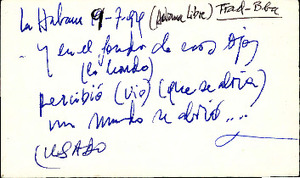 La Habana 9-7-94 (Habana Libre) Frad-Bba
- y en el fondo de esos ojos
(lo hondo)
percibió (vio) (que se abría)
un mundo se abrió....
(USADO